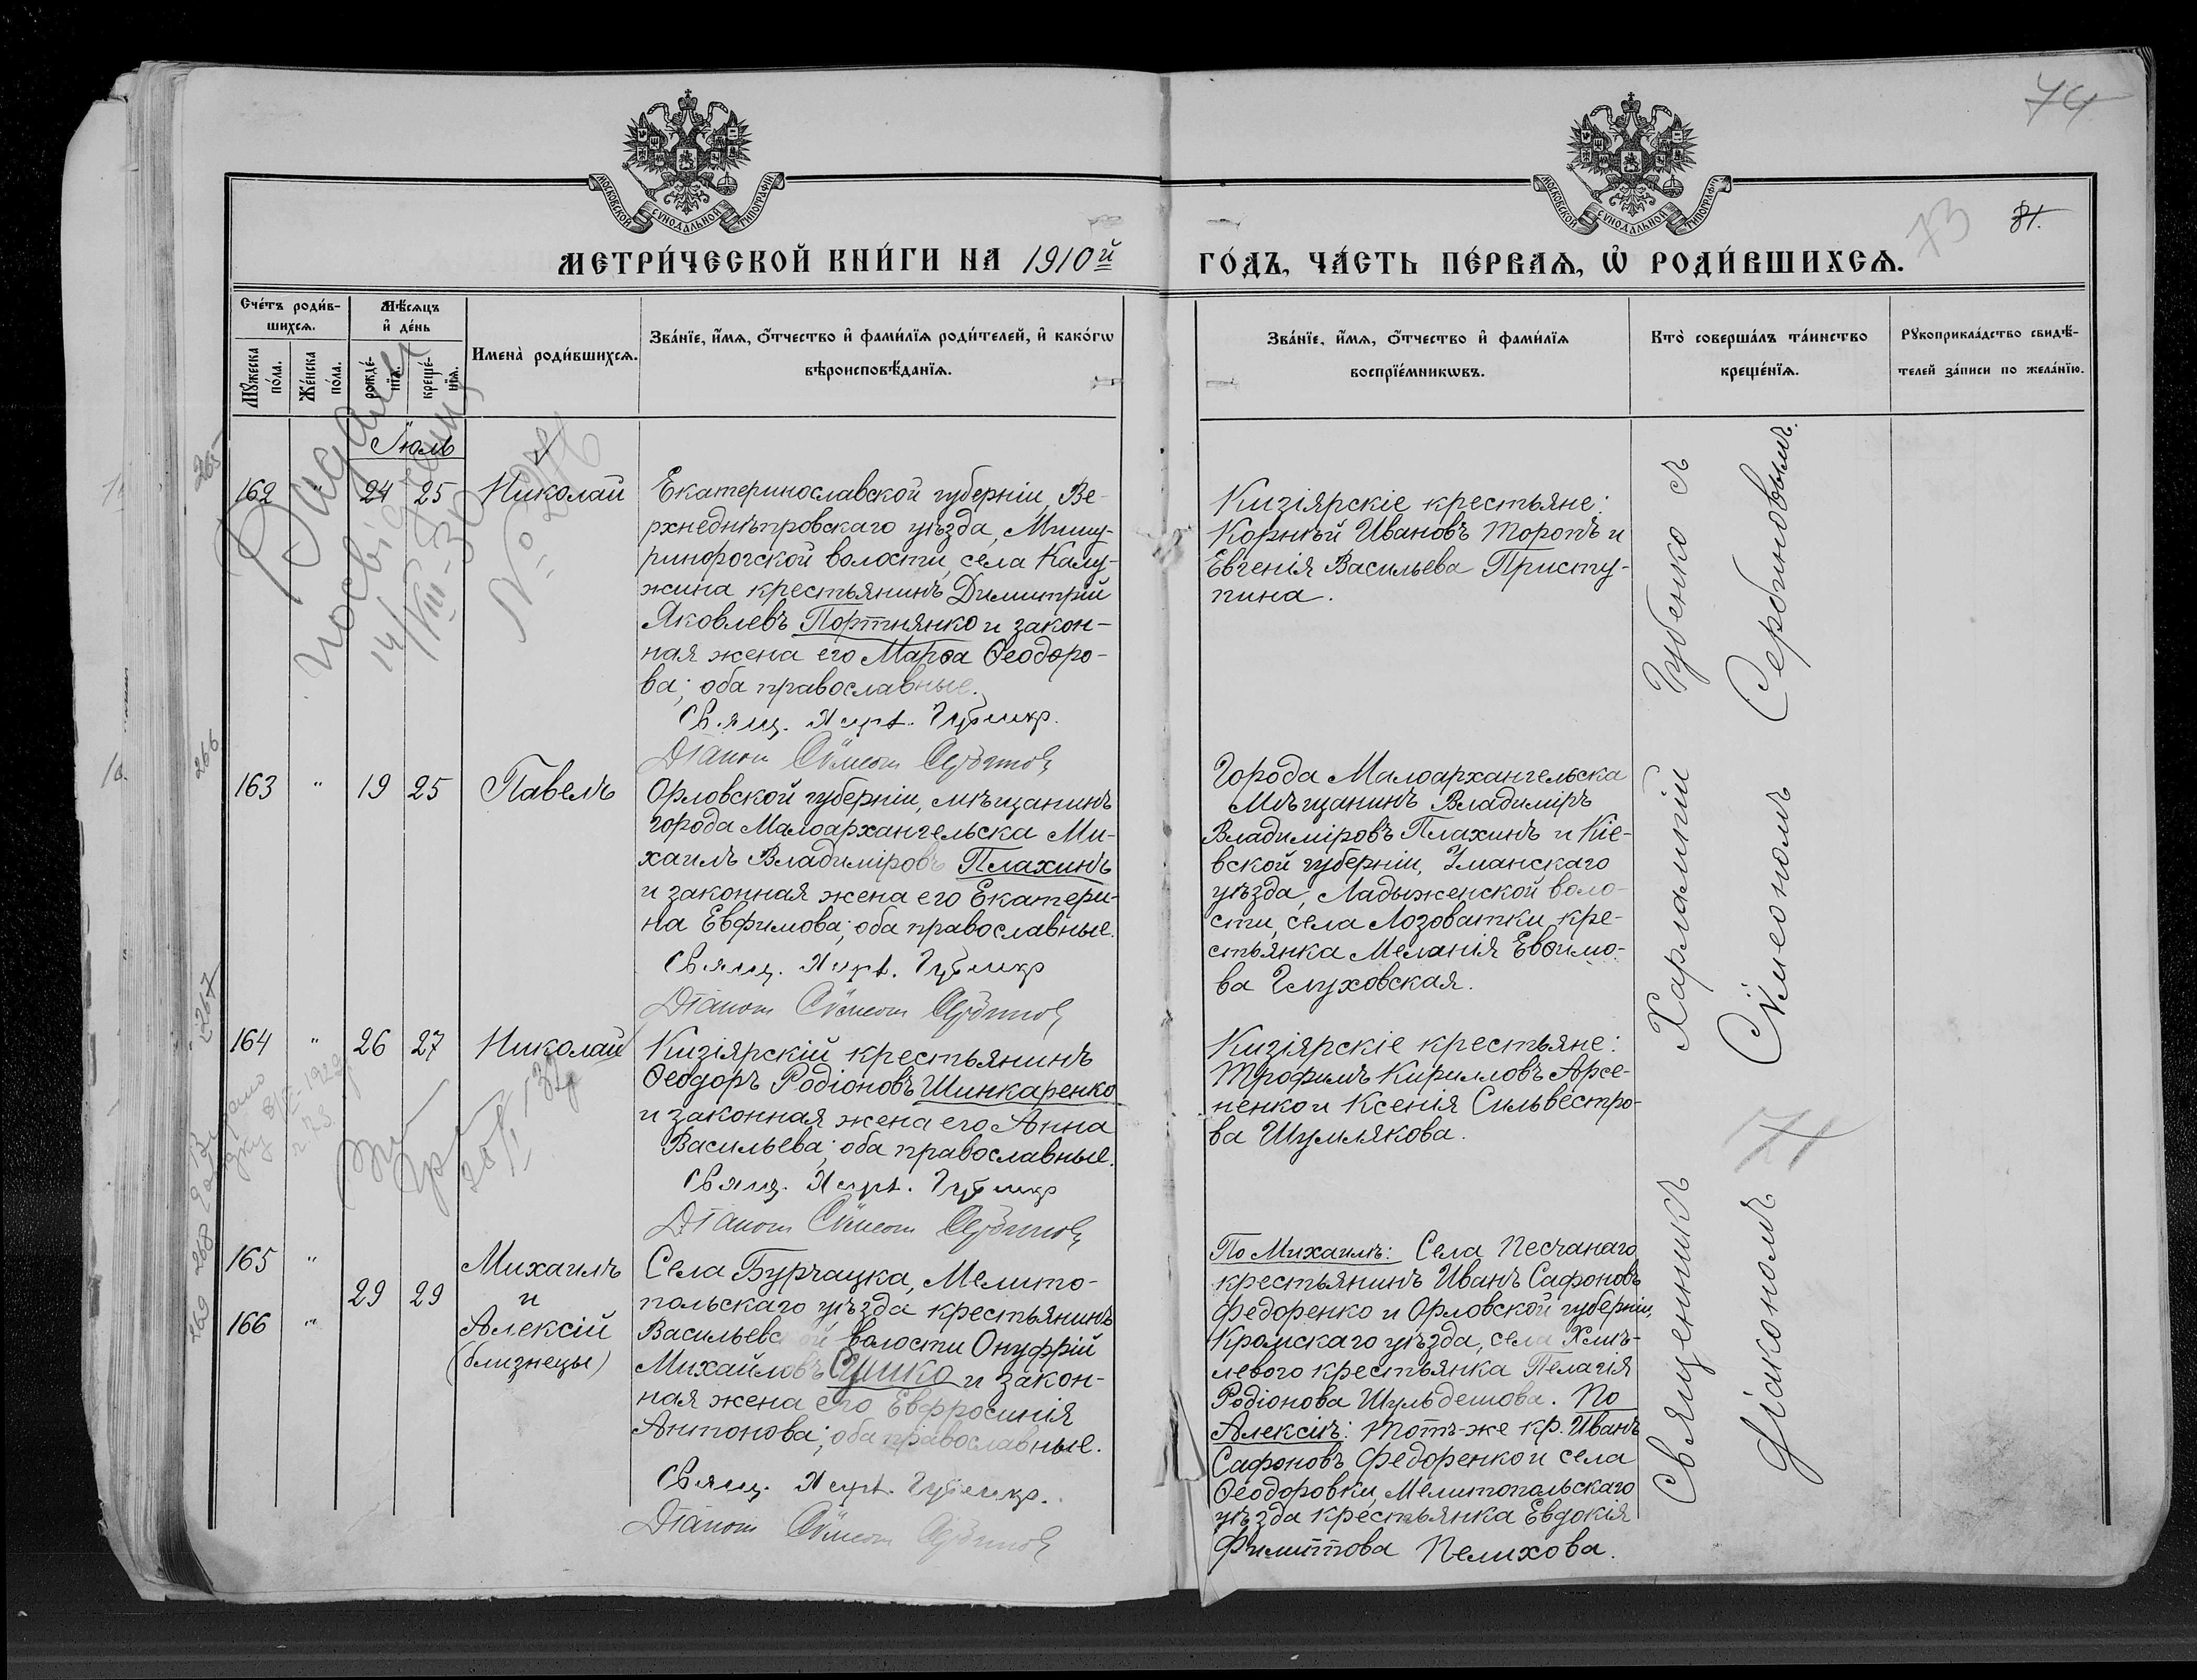 74
МОСКОВСКОЙ СУНОДАЛЬНОЙ ТИПОГРАФИИ
МОСКОВСКОЙ СУНОДАЛЬНОЙ ТИПОГРАФИИ
73 81.
МЕТРИ́ЧЕСКОЙ КНИ́ГИ НА 1910й
ГО́ДЪ, ЧА́СТЬ ПЕ́РВАѦ, Ѡ҆ РОДИ́ВШИХСѦ.
Сче́тъ роди́в-
шихсѧ.
Мꙋ́жеска по́ла.
Же́нска по́ла.
Мѣ́сѧцъ
и҆ де́нь
рожде́-
нїѧ.
креще́-
нїѧ.
Имена̀ роди́вшихсѧ.
Зва́нїе, и҆́мѧ, ѻ҆́тчество и҆ фами́лїѧ роди́телей, и҆ како́гѡ
вѣроисповѣ́данїѧ.
Зва́нїе, и҆́мѧ, ѻ҆́тчество и҆ фами́лїѧ
воспрїе́мникѡвъ.
Кто̀ соверша́лъ та́инство
креще́нїѧ.
Рꙋкоприкла́дство свидѣ́-
телей за́писи по жела́нїю.
Іюль
265
162 " 24 25 Николай
Екатеринославской губерніи, Ве-
рхнеднѣпровскаго уѣзда, Мишу-
ринорогской волости, села Калу-
жина крестьянинъ Димитрій
Яковлевъ Портнянко и закон-
ная жена его Марѳа Ѳеодоро-
ва; оба православные.
Свящ. Харл. Губенко.
Діакон Сѵмеон Сербинов
Кизіярскіе крестьяне:
Корнѣй Ивановъ Торопъ и
Евгенія Васильева Присту-
пина.
266
163 " 19 25 Павелъ
Орловской губерніи, мѣщанинъ
города Малоархангельска Ми-
хаилъ Владиміровъ Плахинъ
и законная жена его Екатери-
на Евфимова; оба православные.
Свящ. Харл. Губенко
Діакон Сѵмеон Сербинов
Города Малоархангельска
мѣщанинъ Владиміръ
Владиміровъ Плахинъ и Кіе-
вской губерніи, Уманскаго
уѣзда, Ладыженской воло-
сти, села Лозоватки, кре-
стьянка Меланія Евѳимо-
ва Глуховская.
267
164 " 26 27 Николай
Кизіярскій крестьянинъ
Ѳеодоръ Родіоновъ Шинкаренко
и законная жена его Анна
Васильева; оба православные.
Свящ. Харл. Губенко
Діакон Сѵмеон Сербинов
Кизіярскіе крестьяне:
Трофимъ Кирилловъ Арсе-
ненко и Ксенія Сильвестро-
ва Шумлякова.
268
269
165 "
29 29
166 "
Михаилъ
и
Алексій
(близнецы)
Села Бурчацка, Мелито-
польскаго уѣзда крестьянинъ
Васильевской волости Онуфрій
Михайловъ Сушко и закон-
ная жена его Евфросинія
Антонова; оба православные.
Свящ. Харл. Губенко.
Діакон Сѵмеон Сербинов
По Михаилѣ: Села Песчанаго
крестьянинъ Иванъ Сафоновъ
Федоренко и Орловской губерніи,
Кромскаго уѣзда, села Хмѣ-
левого крестьянка Пелагія
Родіонова Шульдешова. По
Алексіѣ: тотъ-же кр. Иванъ
Сафоновъ Федоренко и села
Ѳеодоровки, Мелитопольскаго
уѣзда крестьянка Евдокія
Филиппова Пелихова.
Священникъ Харлампій Губенко съ
Діакономъ Сѵмеономъ Сербиновымъ.
74